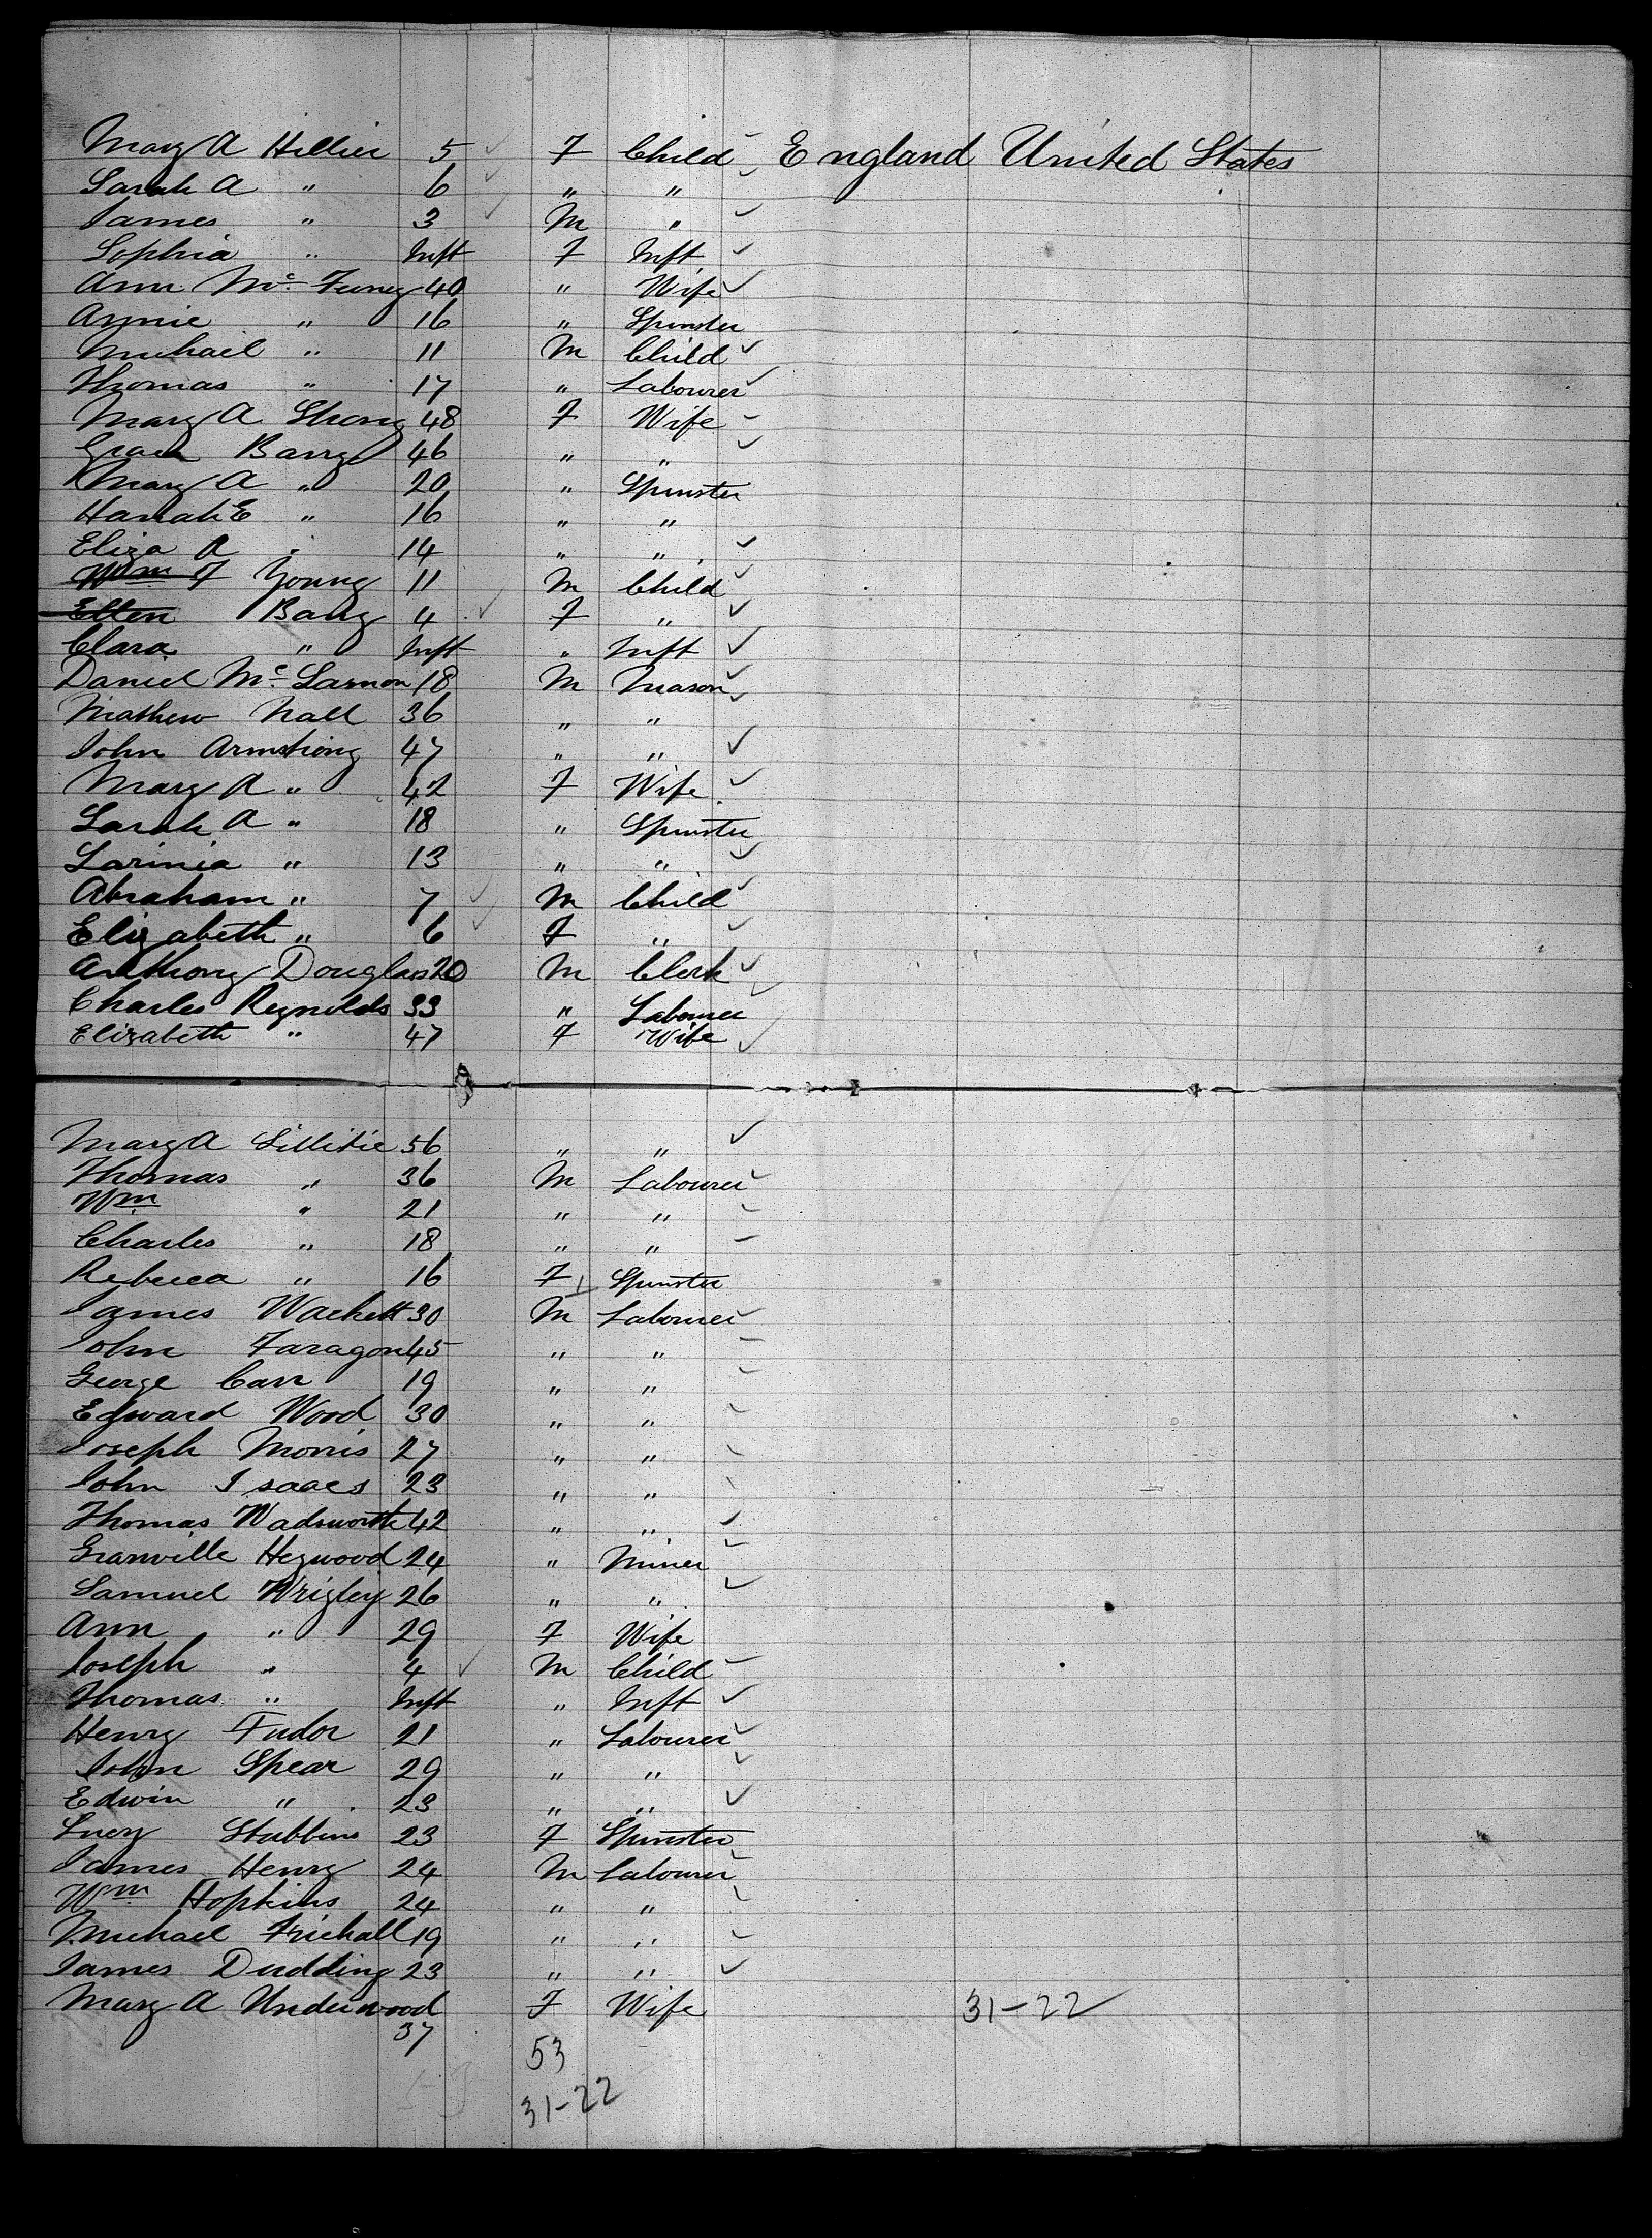 Mary A Hillier 5 F Child England United States
Sarah A " 6 " "
James " 3 M "
Sophia " Inft F Inft
Ann Mc 40 " Wife
Annie " 16 " Spinster
Michael " 11 M Child
Thomas " 17 " Labourer
Mary A Strong 48 F Wife
Grace Barry 46 " "
Mary A " 20 " Spinster
Hanah E " 16 " "
Eliza A " 14 " "
Wm F Young 11 M Child
Ellen Barry 4 F "
Clara " Inft " Inft
Daniel Mc Larnon 18 M Mason
Mathew Nall 36 " "
John Armstrong 47 " "
Mary A " 42 F Wife
Sarah A " 18 " Spinster
Lavinia " 13 " "
Abraham " 7 M Child
Elizabeth " 6 F "
Anthony Douglas 20 M Clerk
Charles Reynolds 33 " Labourer
Elizabeth " 47 F Wife
Mary A Lillitie 56 " "
Thomas " 36 M Labourer
Wm " 21 " "
Charles " 18 " "
Rebecca " 16 F Spinster
James Wackett 30 M Labourer
John Faragon 45 " "
George Carr 19 " "
Edward Wood 30 " "
Joseph Morris 27 " "
John Isaacs 23 " "
Thomas Wadsworth 42 " "
Granville Heywood 24 " Miner
Samuel Wrigley 26 " "
Ann " 29 F Wife
Joseph " 4 M Child
Thomas " Inft " Inft
Henry Tudor 21 " Labourer
John Spear 29 " "
Edwin " 23 " "
Lucy Stubbins 23 F Spinster
James Henry 24 M Labourer
Wm Hopkins 24 " "
Michael 19 " "
James Dudding 23 " "
Mary A Underwood F Wife 31-22
37
53
31-22